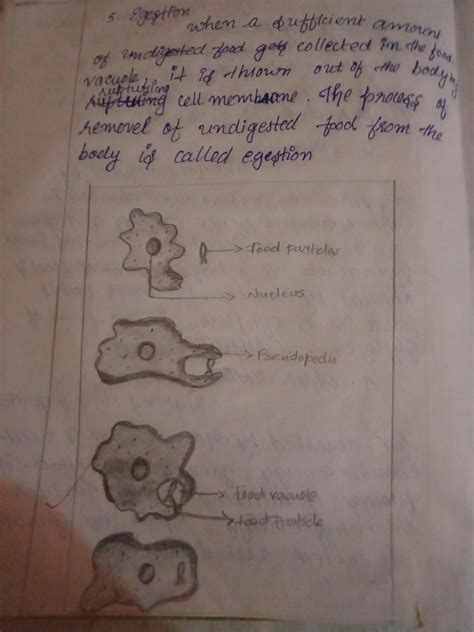 5. Egestion
when a sufficient amount
of undigested food gets collected in the food
vacuole, it is thrown out of the body by
rupturing
rupturing cell membrane. The process of
removel of undigested food from the
body is called egestion
Food particles
Nucleus
Pseudopodia
Food vacuole
Food particle